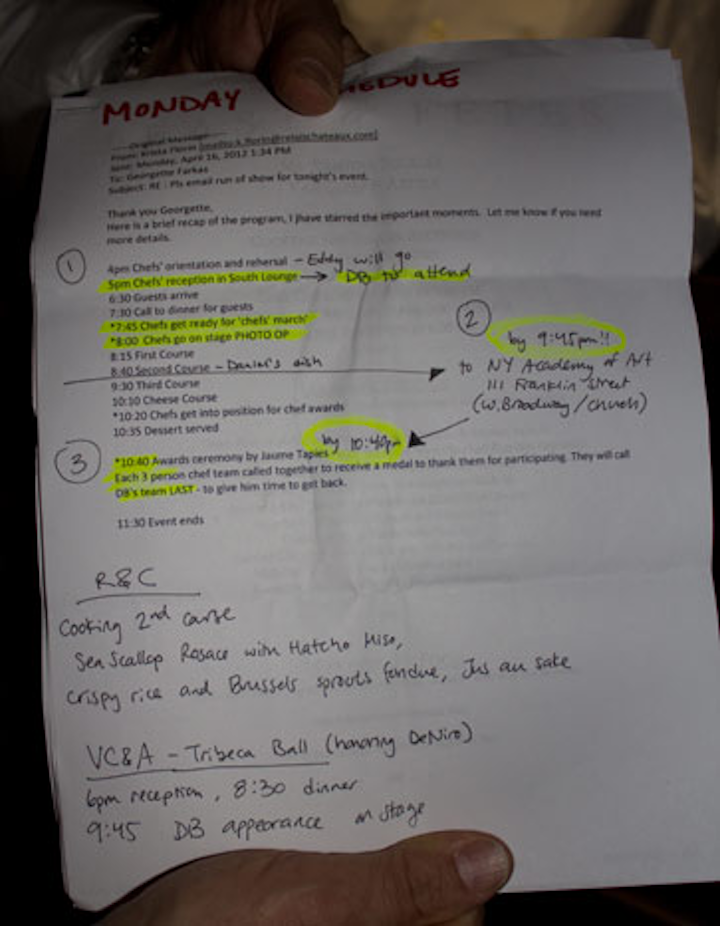 MONDAY SCHEDULE
-----Original Message-----
From: Krista Florin [mailto:k.florin@relaischateaux.com]
Sent: Monday, April 16, 2012 1:34 PM
To: Georgette Farkas
Subject: RE : Pls email run of show for tonight's event.
Thank you Georgette,
Here is a brief recap of the program, I jhave starred the important moments. Let me know if you need
more details.
① 4pm Chefs' orientation and rehersal – Eddy will go
5pm Chefs' reception in South Lounge → DB to attend
6:30 Guests arrive
7:30 Call to dinner for guests
*7:45 Chefs get ready for 'chefs' march'
*8:00 Chefs go on stage PHOTO OP
8:15 First Course
8:40 Second Course – Daniel's dish
9:30 Third Course
10:10 Cheese Course
*10:20 Chefs get into position for chef awards
10:35 Dessert served
② by 9:45pm!!
to NY Academy of Art
111 Franklin Street
(W. Broadway / Church)
by 10:40pm
③ *10:40 Awards ceremony by Jaume Tapies
Each 3 person chef team called together to receive a medal to thank them for participating. They will call
DB's team LAST - to give him time to get back.
11:30 Event ends
R&C
Cooking 2nd course
Sea Scallop Rosace with Hatcho Miso,
crispy rice and Brussels sprouts fondue, Jus au sake
VC&A – Tribeca Ball (honoring DeNiro)
6pm reception, 8:30 dinner
9:45 DB appearance on stage